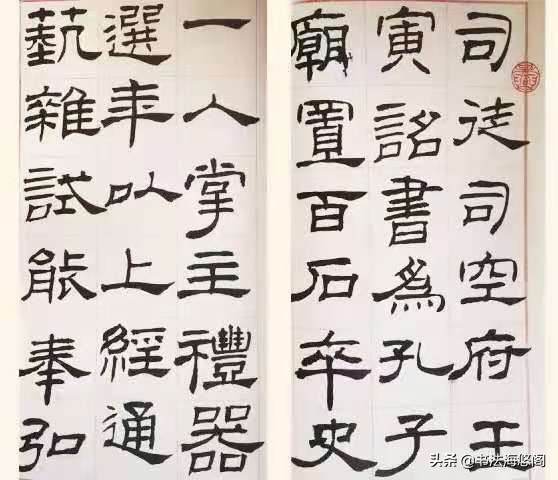 司徒司空府壬
寅詔書為孔子
廟置百石卒史
一人掌主禮器
選年以上經通
藝雜試能奉弘
头条 @书法海悠阁